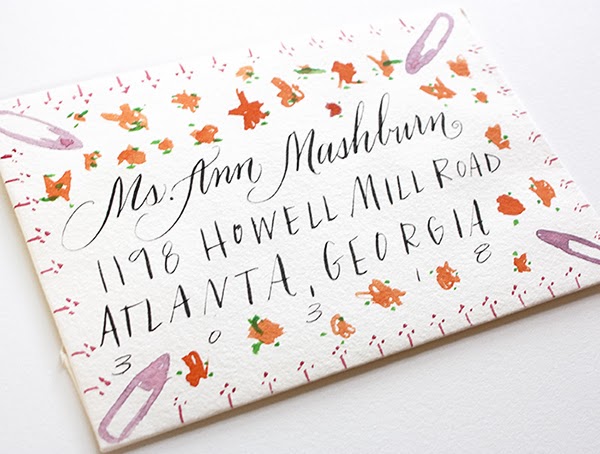 Ms. Ann Mashburn
1198 HOWELL MILL ROAD
ATLANTA, GEORGIA
30318